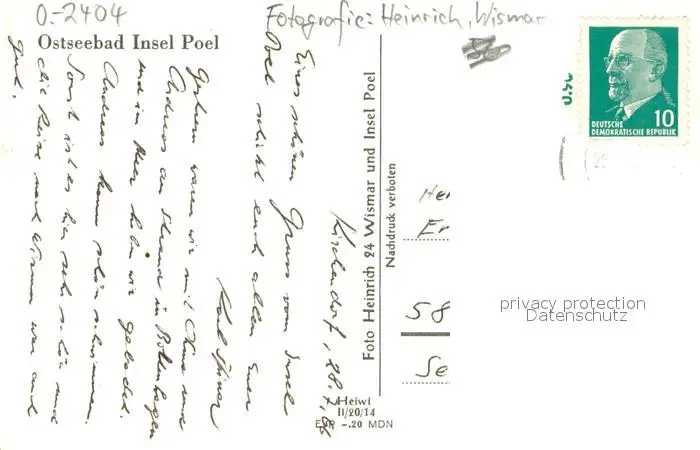 O.-2404
Fotografie: Heinrich, Wismar
Ostseebad Insel Poel
DEUTSCHE
DEMOKRATISCHE REPUBLIK
10
Kirchdorf, 28.7.66
Einen schönen Gruss vom Insel
Poel schickt euch allen Euer
Karl
Gestern waren wir mit Claus und
Andreas am Strand in Boltenhagen
und im Meer haben wir gebadet.
Andreas kann schön schwimmen.
Sonst ist es hier sehr schön und
die Reise nach Wismar war auch
gut.
Foto Heinrich 24 Wismar und Insel Poel
Nachdruck verboten
Er
58
Se
Heiwi
II/20/14
EVP -.20 MDN
privacy protection
Datenschutz